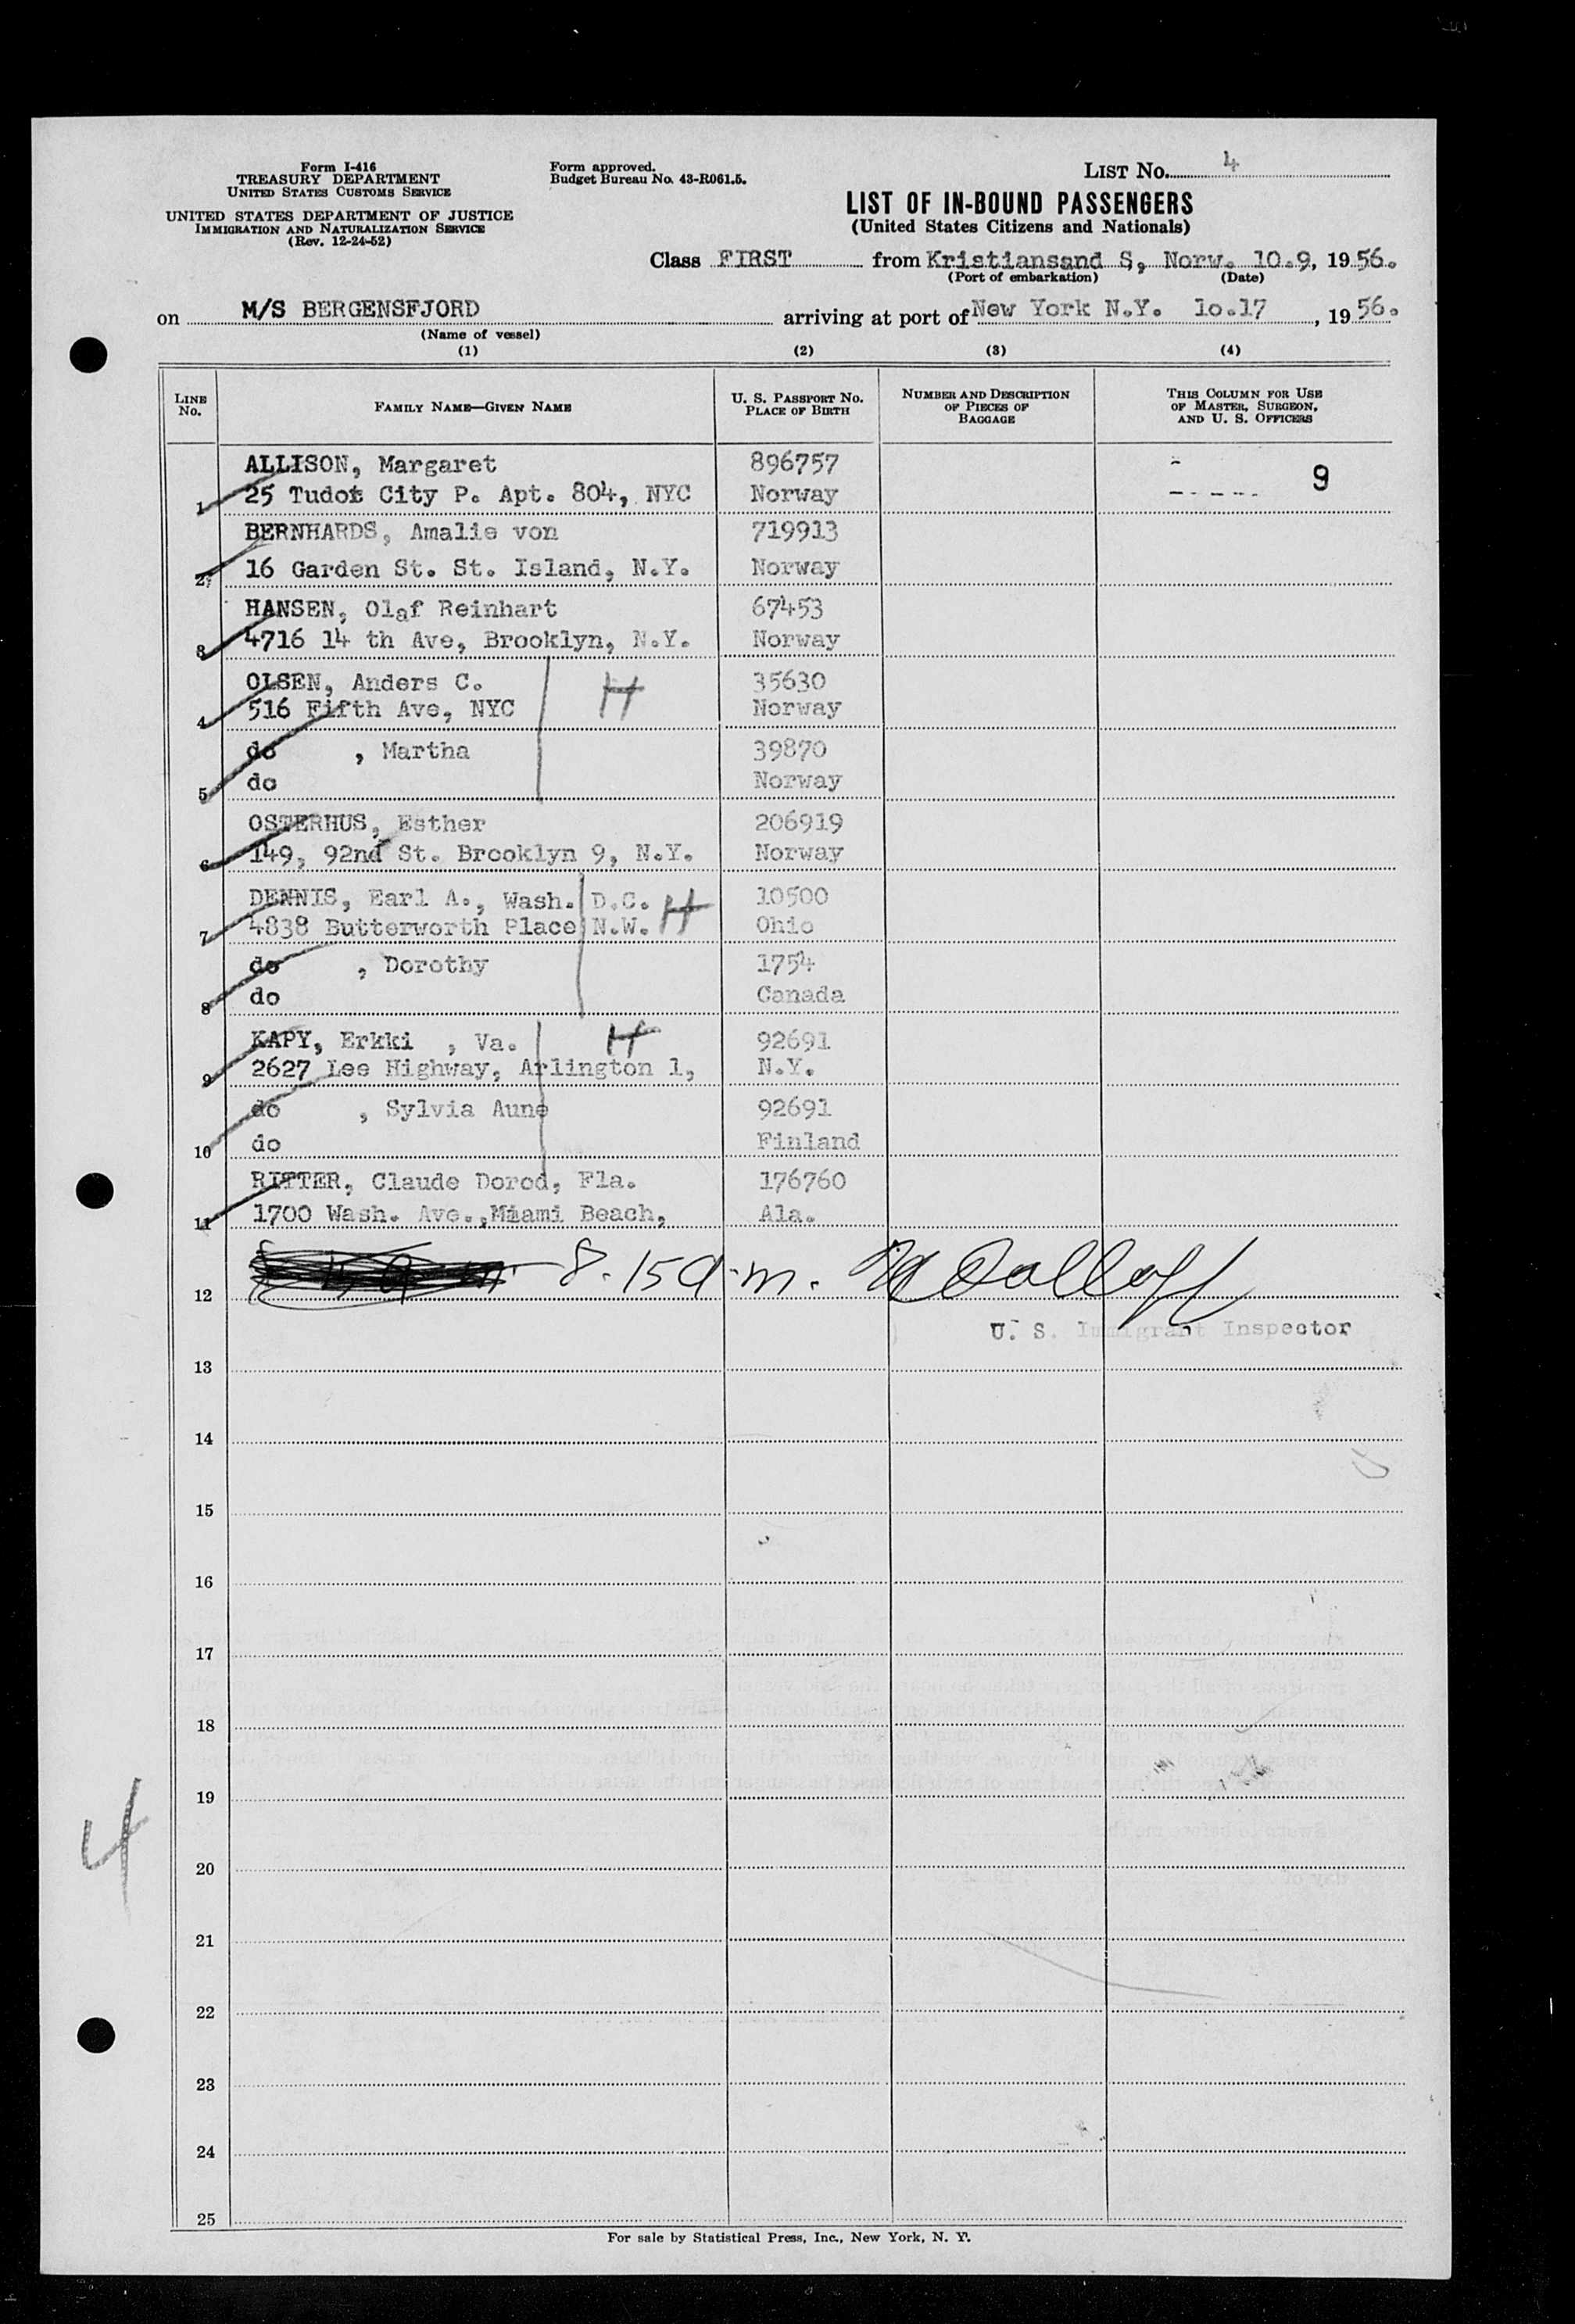 Form I-416
TREASURY DEPARTMENT
UNITED STATES CUSTOMS SERVICE
UNITED STATES DEPARTMENT OF JUSTICE
IMMIGRATION AND NATURALIZATION SERVICE
(Rev. 12-24-52)
Form approved.
Budget Bureau No. 43-R061.5.
LIST No. 4
LIST OF IN-BOUND PASSENGERS
(United States Citizens and Nationals)
Class FIRST from Kristiansand S, Norw. 10.9, 19 56.
(Port of embarkation) (Date)
on M/S BERGENSFJORD arriving at port of New York N.Y. 1o.17, 19 56.
(Name of vessel)
(1) (2) (3) (4)
LINE No. FAMILY NAME—GIVEN NAME U. S. PASSPORT No. PLACE OF BIRTH NUMBER AND DESCRIPTION OF PIECES OF BAGGAGE THIS COLUMN FOR USE OF MASTER, SURGEON, AND U. S. OFFICERS
ALLISON, Margaret 896757
1 25 Tudot City P. Apt. 804, NYC Norway 9
BERNHARDS, Amalie von 719913
2 16 Garden St. St. Island, N.Y. Norway
HANSEN, Olaf Reinhart 67453
3 4716 14 th Ave, Brooklyn, N.Y. Norway
OLSEN, Anders C. H 35630
4 516 Fifth Ave, NYC Norway
do , Martha 39870
5 do Norway
OSTERHUS, Esther 206919
6 149, 92nd St. Brooklyn 9, N.Y. Norway
DENNIS, Earl A., Wash. D.C. H 10500
7 4838 Butterworth Place N.W. Ohio
do , Dorothy 1754
8 do Canada
KAPY, Erkki , Va. H 92691
9 2627 Lee Highway, Arlington 1, N.Y.
do , Sylvia Aune 92691
10 do Finland
RITTER, Claude Dorod, Fla. 176760
11 1700 Wash. Ave.,Miami Beach, Ala.
12 8.15 a.m.
U. S. Immigrant Inspector
13
14
15
16
17
18
4
19
20
21
22
23
24
25
For sale by Statistical Press, Inc., New York, N. Y.